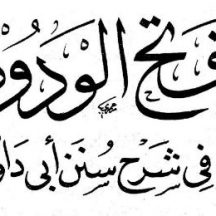 فتح الْوَدُودِ
فِي شَرْح سُنَن أَبِي دَاو